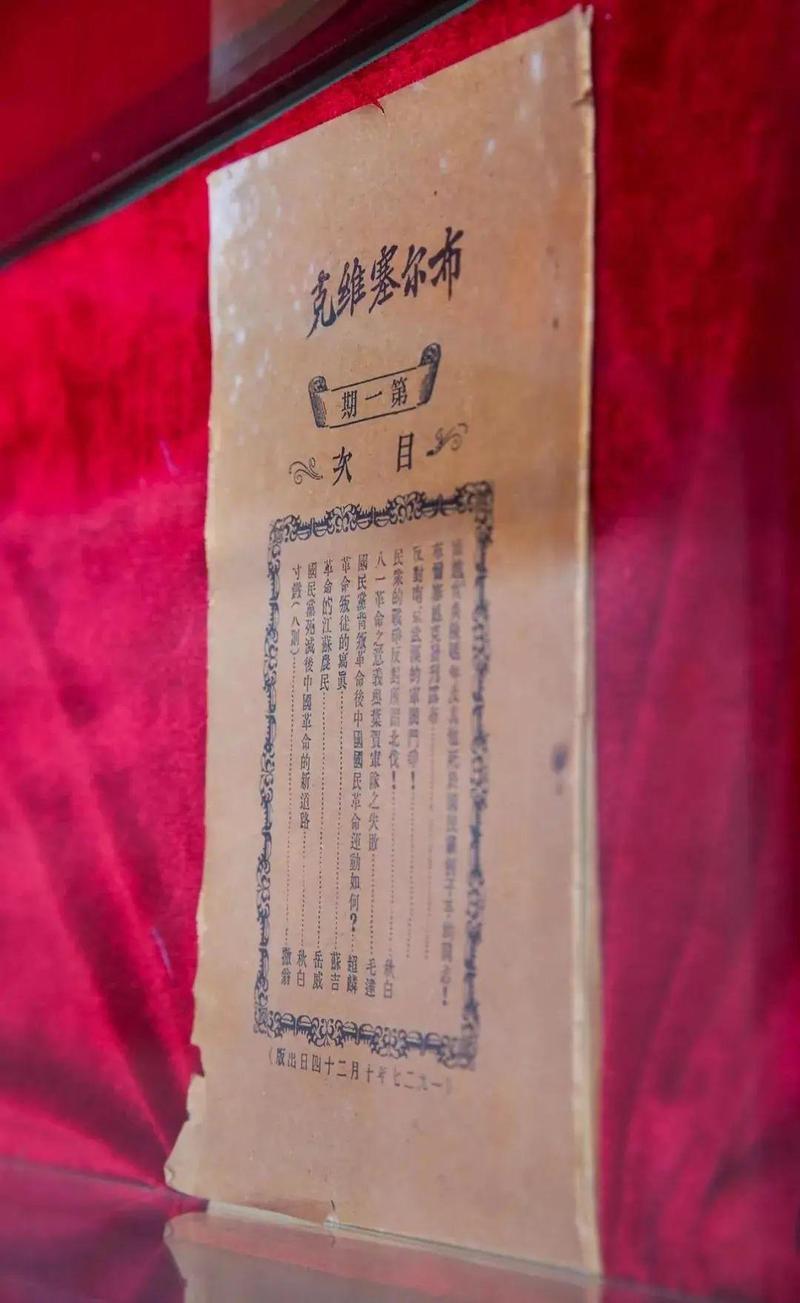 布尔塞維克
第一期
目次
死於國民黨劊子手的同志！
布爾塞維克發刊露布
反對南京武漢的軍閥鬥爭！
民衆的戰爭反對所謂北伐！……秋白
八一革命之意義與葉賀軍隊之失敗……毛達
國民黨背叛革命後中國國民革命運動如何？…超麟
革命叛徒的寫眞……蘇吉
革命的江蘇農民……岳威
國民黨死滅後中國革命的新道路……秋白
寸鐵（八則）……撒翁
（一九二七年十月二十四日出版）